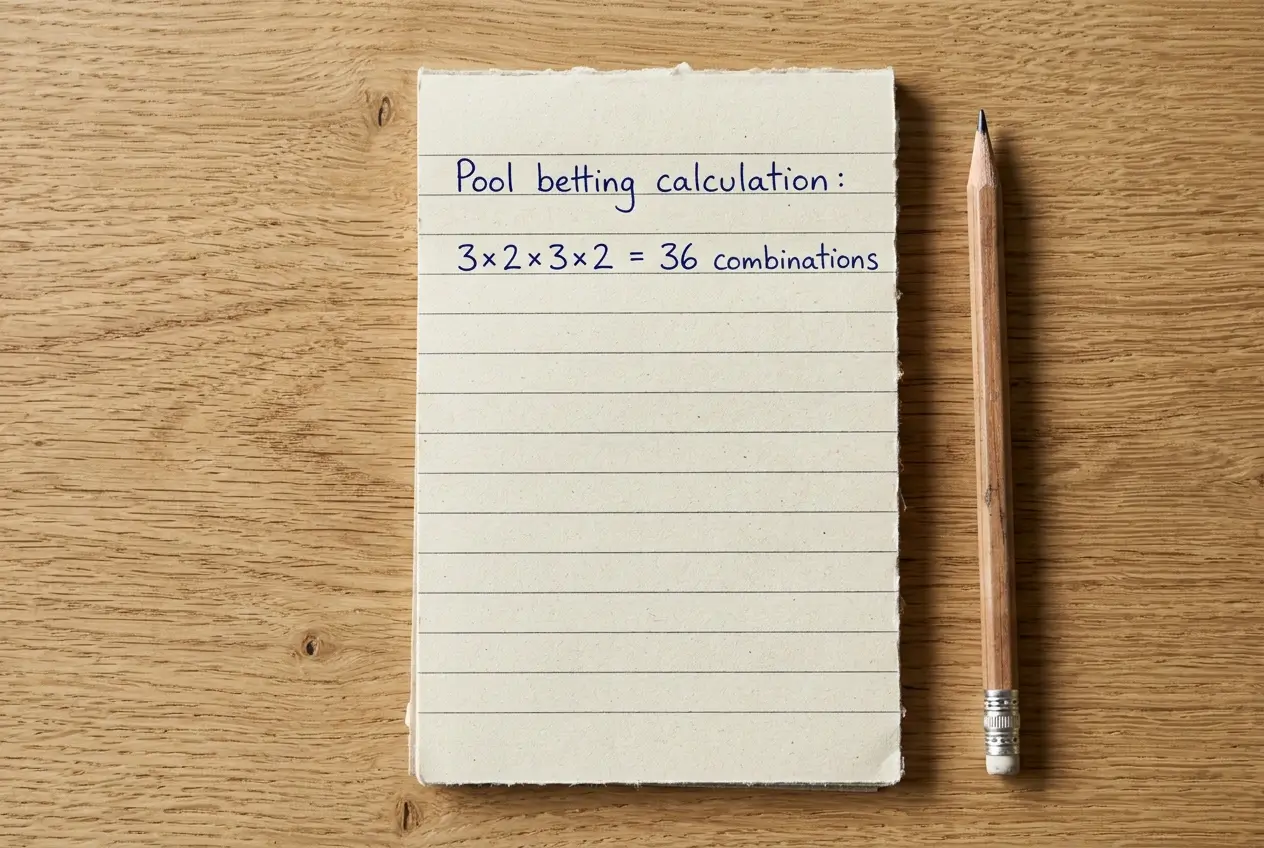 Pool betting calculation:
3×2×3×2 = 36 combinations